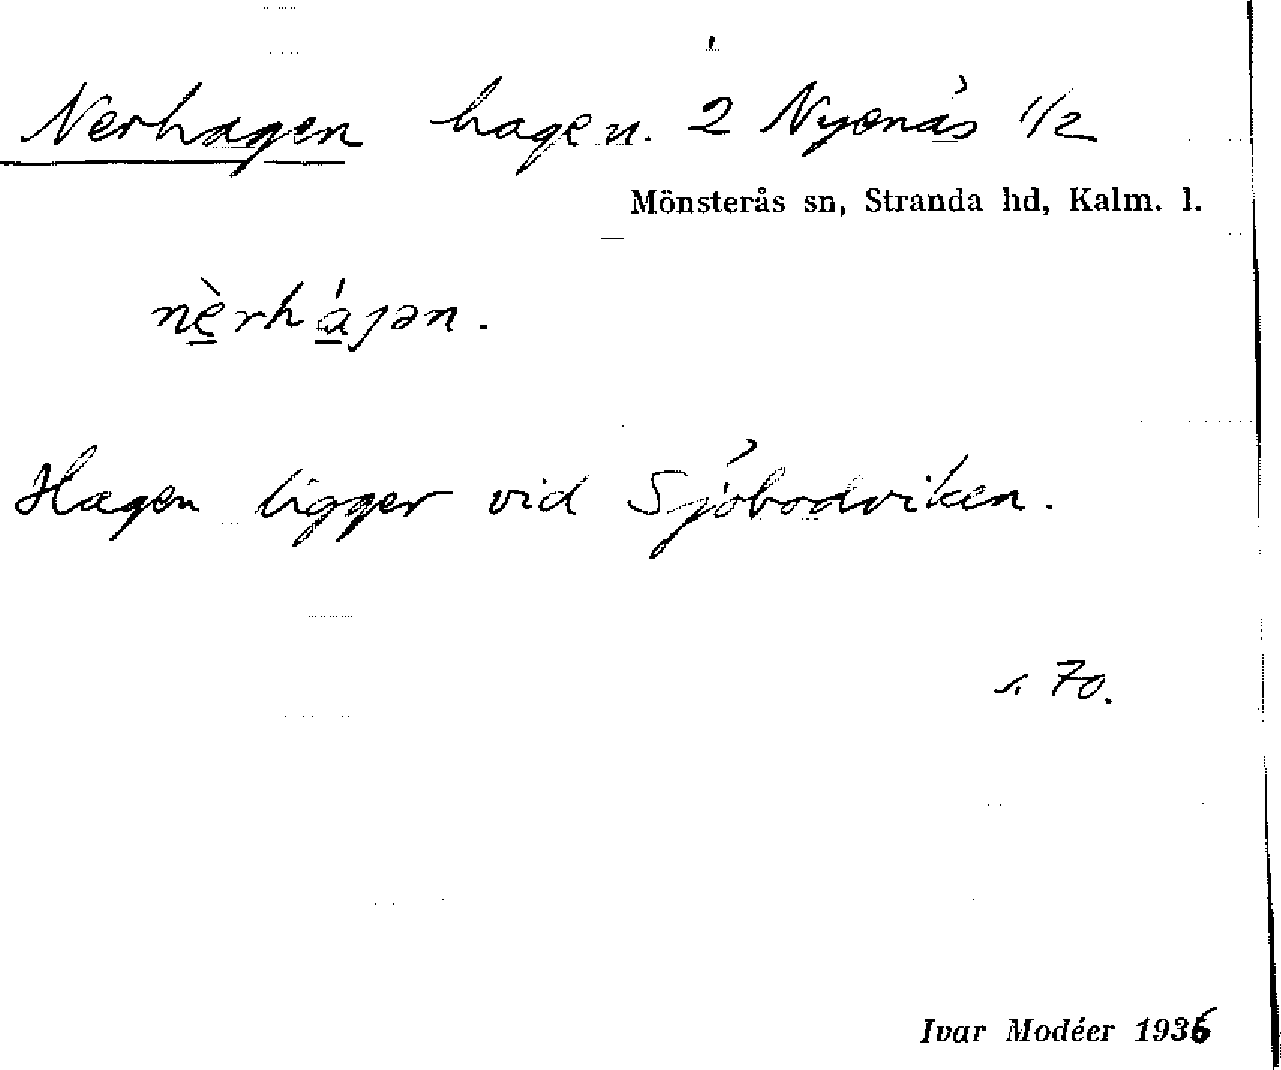 Nerhagen hagen. 2 Nyenäs 1/2
Mönsterås sn, Stranda hd, Kalm. l.
nè̱rhá̱jən.
Hagen ligger vid Sjöbodviken.
s. 70.
Ivar Modéer 1936